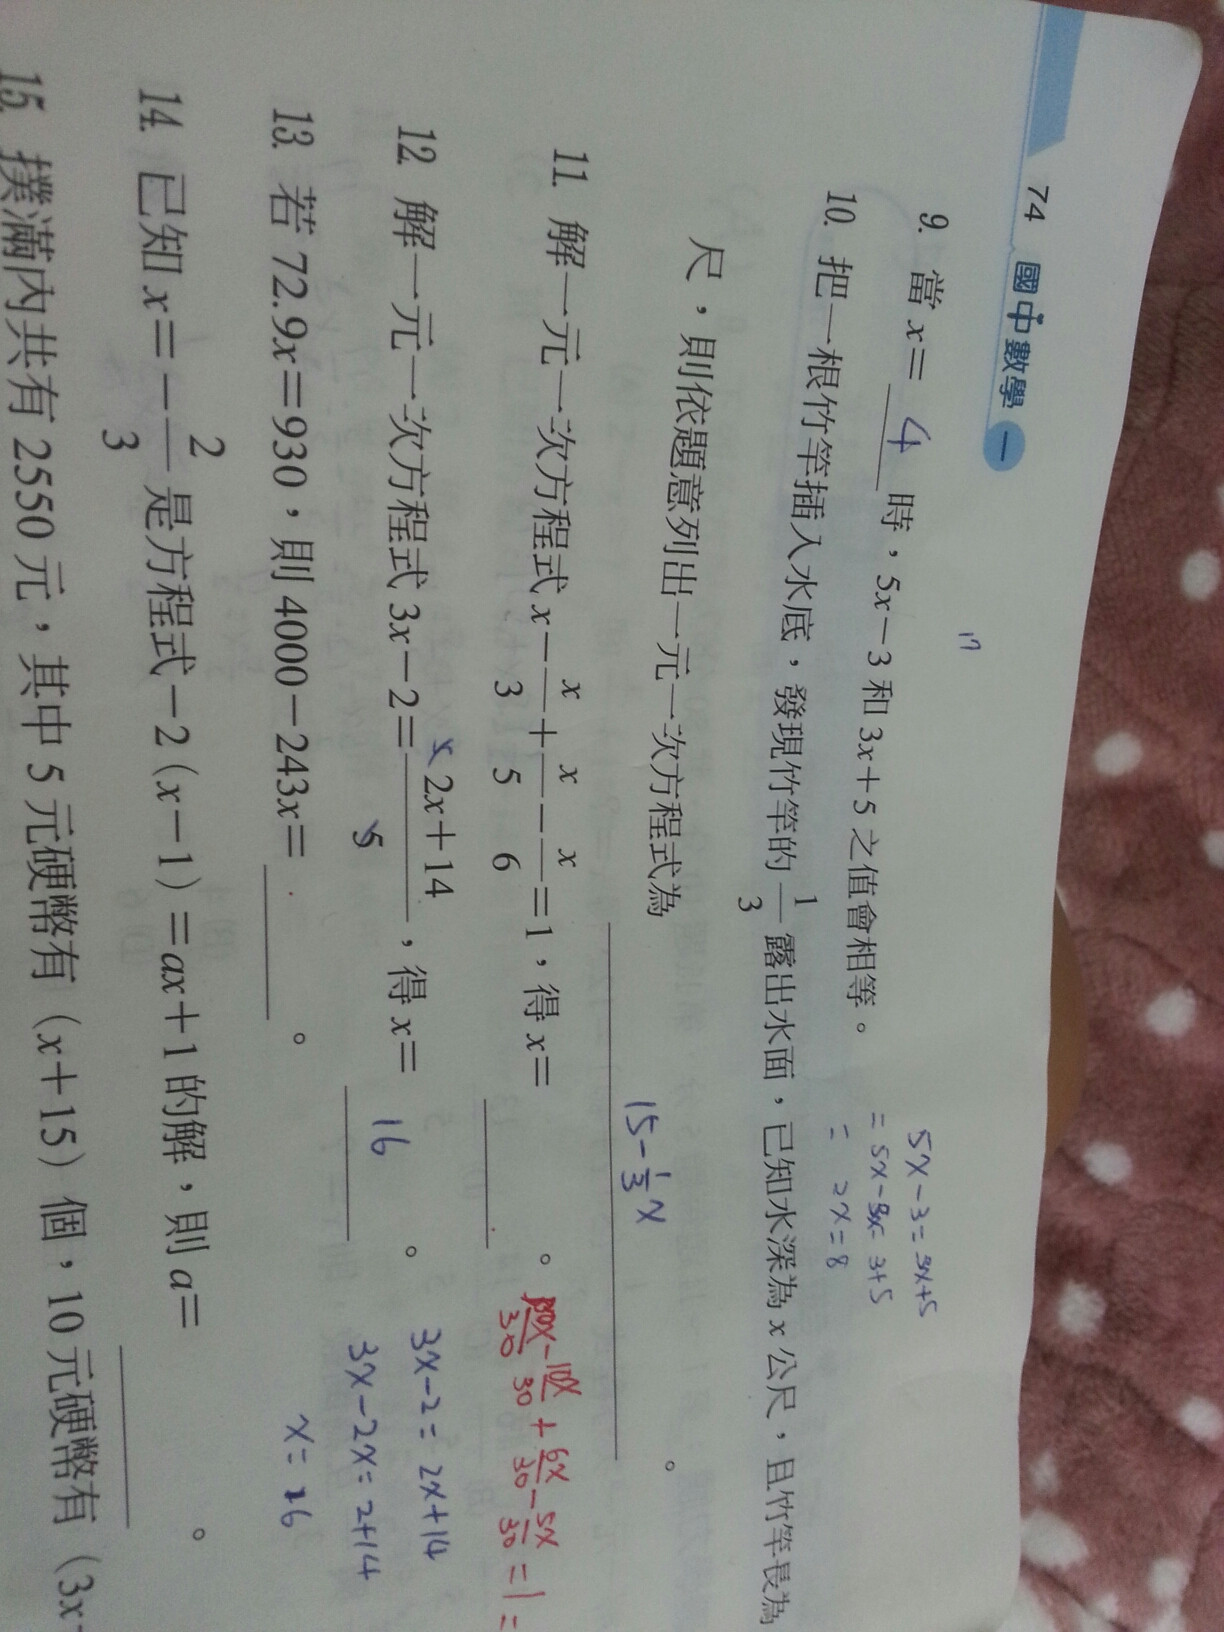 74 國中數學 一
9. 當 x= 4 時，5x－3 和 3x＋5 之值會相等。
17
5x－3＝3x＋5
＝5x－3x＝3＋5
＝ 2x＝8
10. 把一根竹竿插入水底，發現竹竿的 1/3 露出水面，已知水深為 x 公尺，且竹竿長為
尺，則依題意列出一元一次方程式為 15－1/3x 。
11. 解一元一次方程式 x－x/3＋x/5－x/6＝1，得 x＝ 。
30x/30－10x/30＋6x/30－5x/30＝1＝
12. 解一元一次方程式 3x－2＝2x＋14/5，得 x＝ 16 。
3x－2＝2x＋14
3x－2x＝2＋14
x＝16
13. 若 72.9x＝930，則 4000－243x＝ 。
14. 已知 x＝－2/3 是方程式－2（x－1）＝ax＋1 的解，則 a＝ 。
15. 撲滿內共有 2550 元，其中 5 元硬幣有（x＋15）個，10 元硬幣有（3x